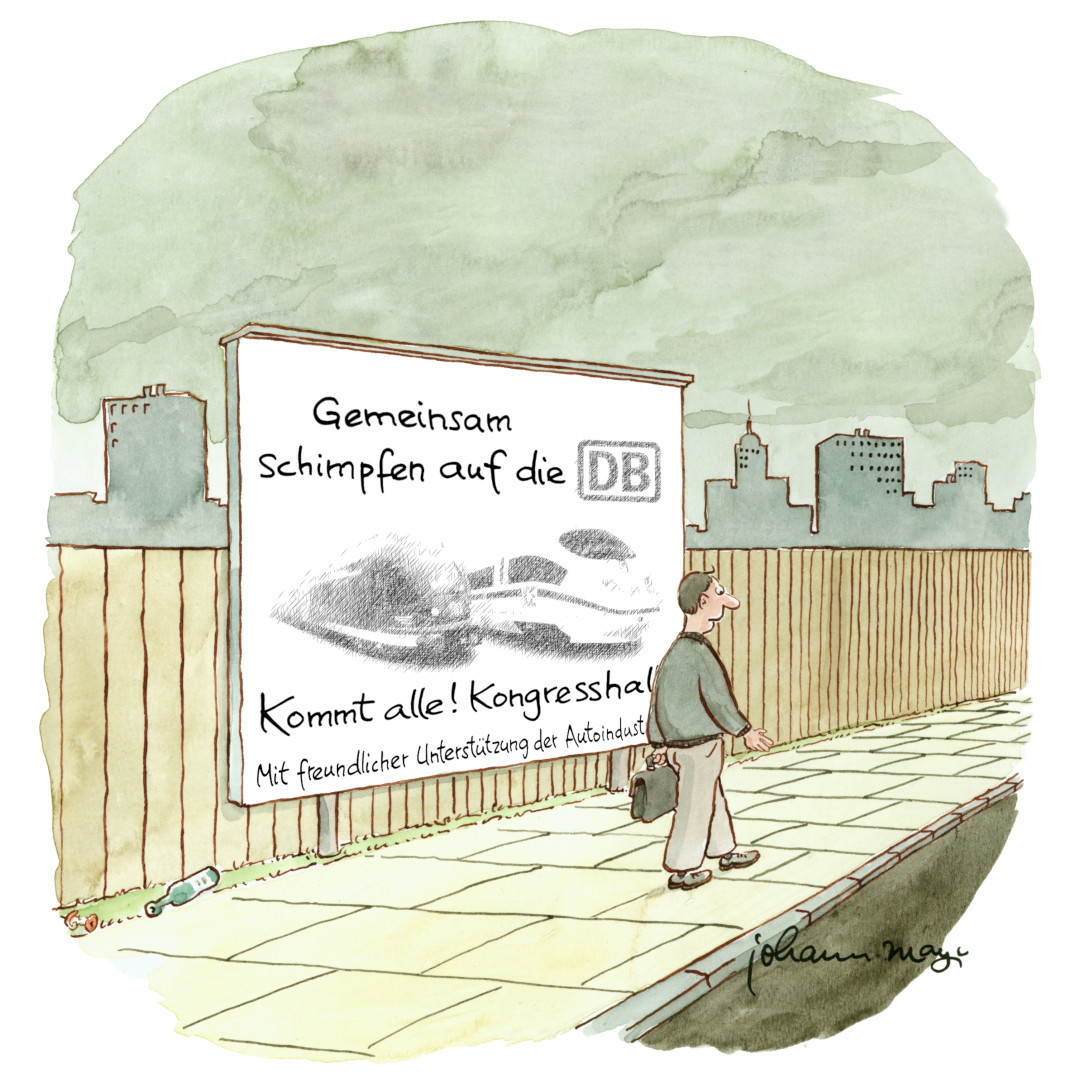 Gemeinsam
schimpfen auf die DB
Kommt alle! Kongresshal
Mit freundlicher Unterstützung der Autoindust
johann mayr